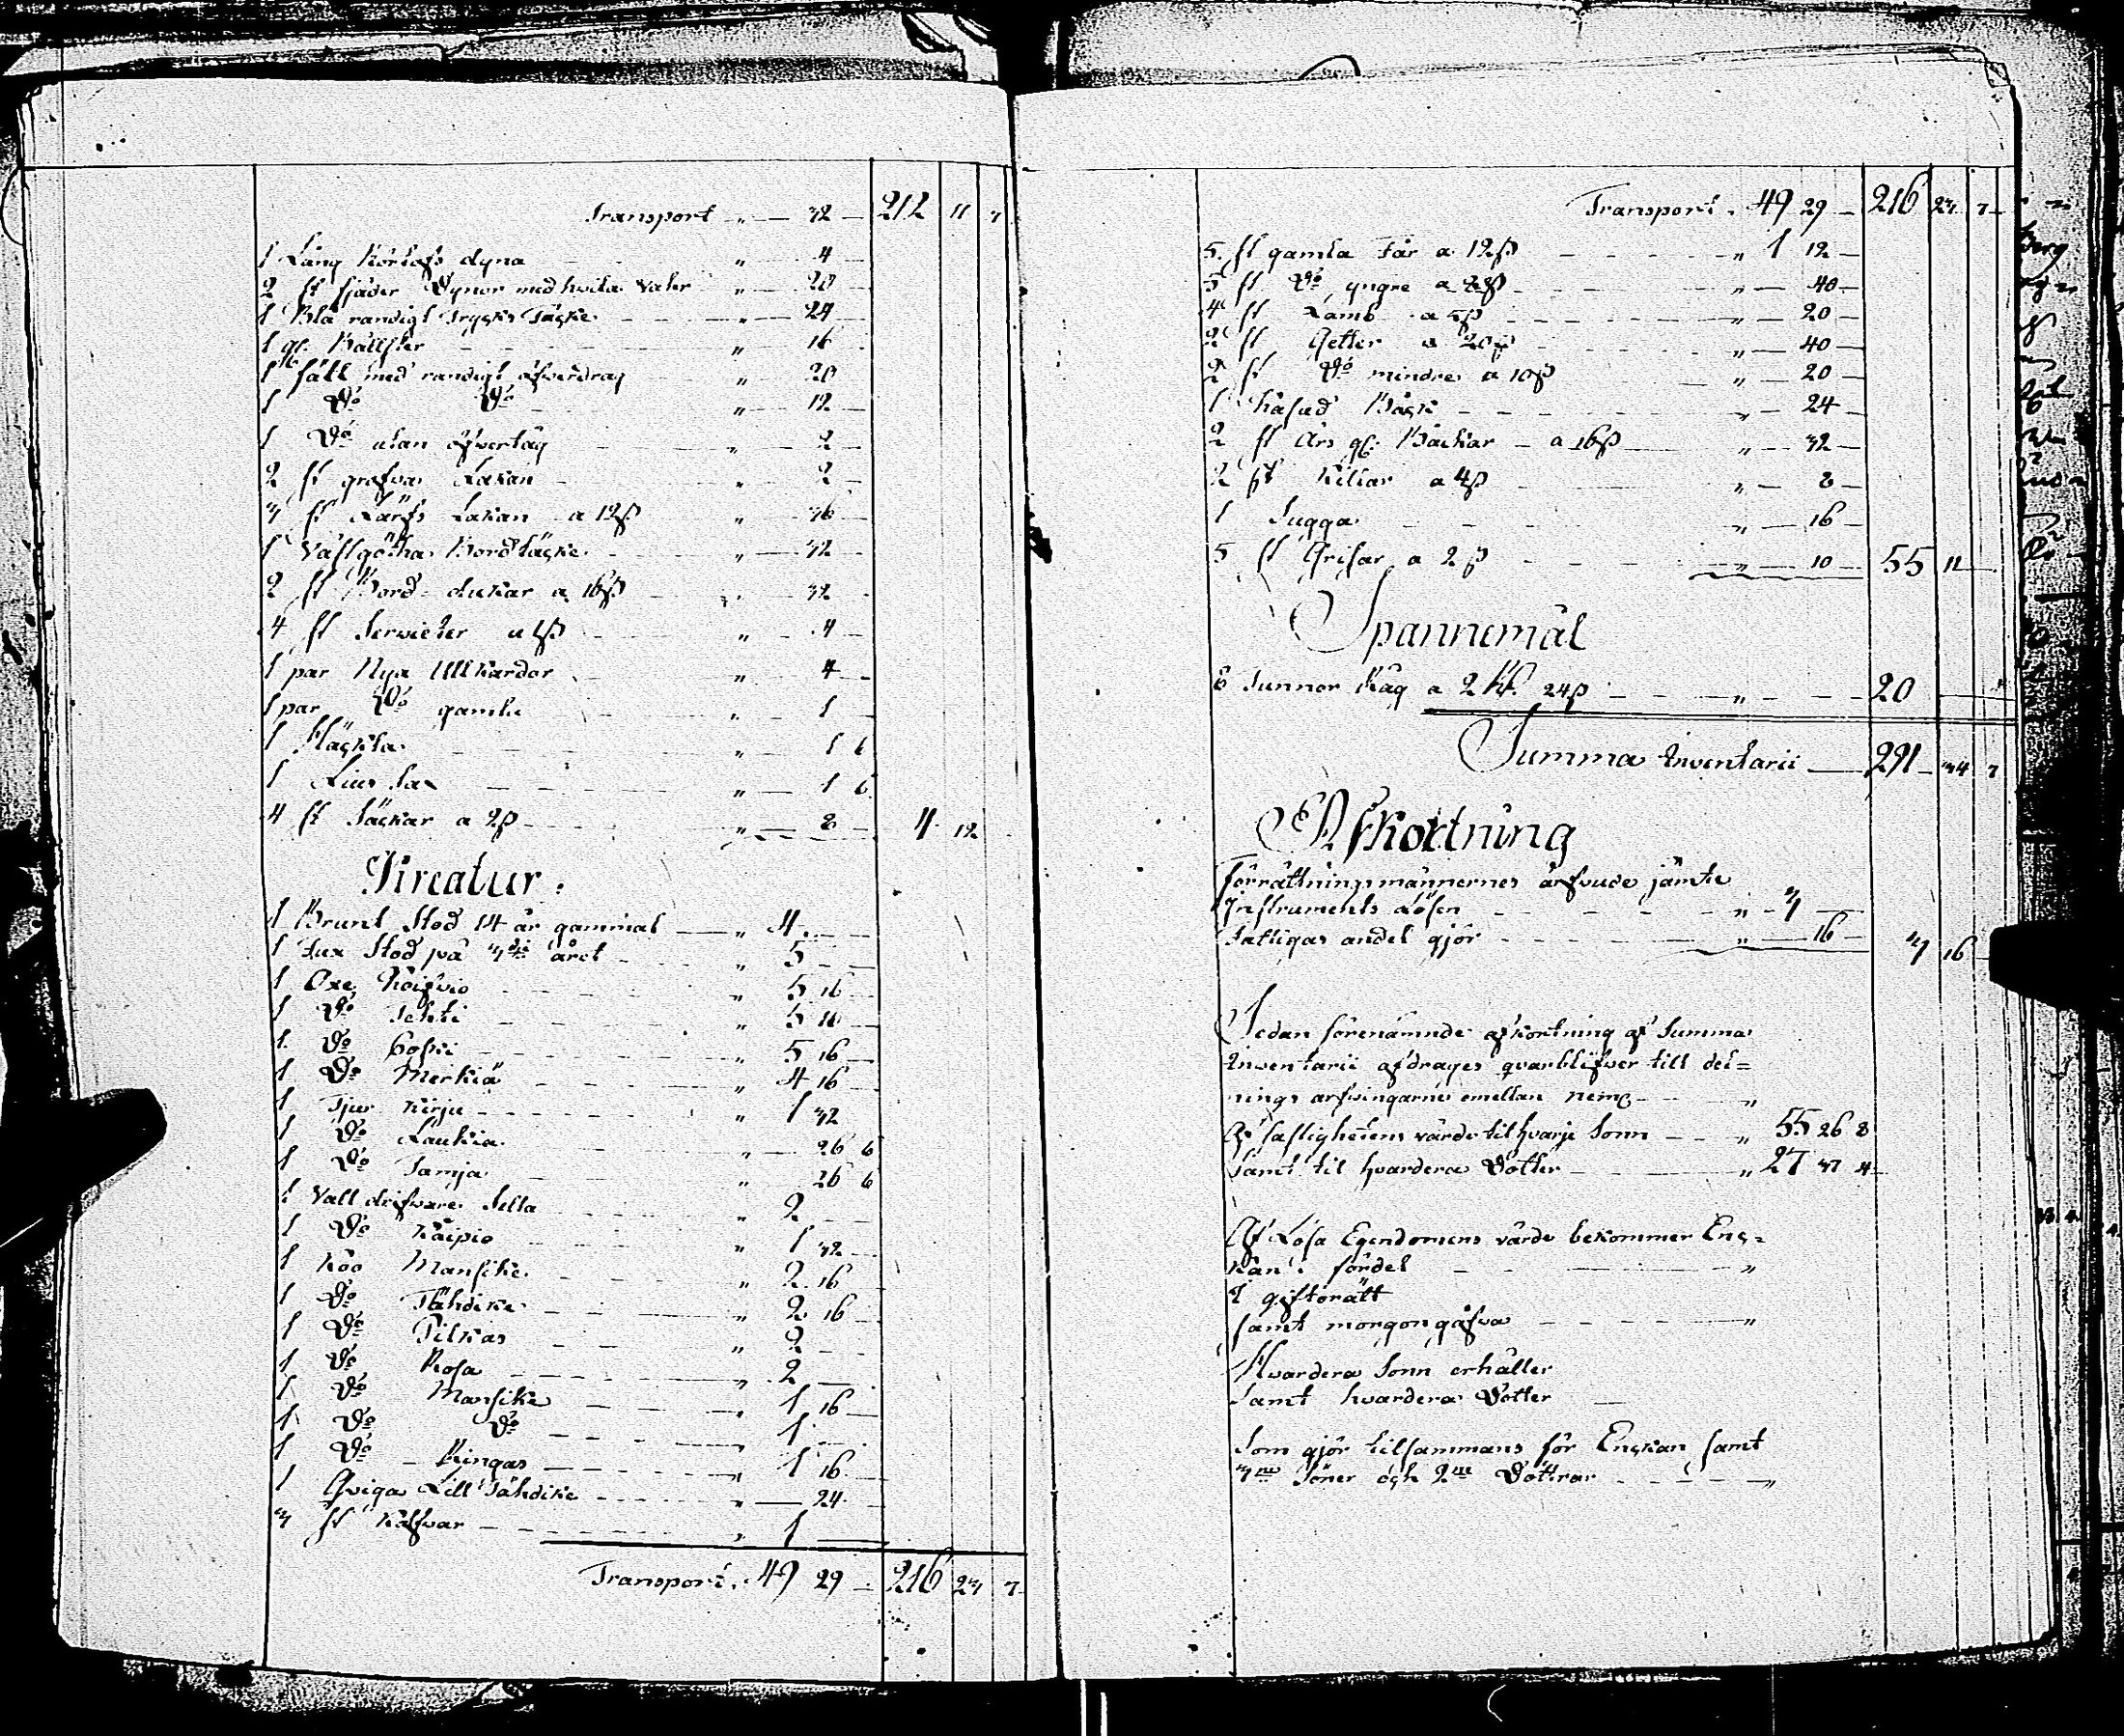 Transport „ — 32 — 212 11 7
1 Lång Körhafs dyna „ — 4
2 st fjäder Dynor med hvita vahr „ — 20
1 Blå randigt Trycks Täcke „ — 24
1 gl: Bållster „ — 16
1 fäll med randigt öfverdrag „ — 20
1 Do Do „ — 12
1 Do utan öfvertåg „ — 2
2 st grofva Lakan „ — 2
3 st Lärfs Lakan a 12ß „ — 36
1 Västgötha Bordtäcke „ — 32
2 st Bord dukar a 16ß „ — 32
4 st Servieter a 1ß „ — 4
1 par Nya Ullkardor „ 4
1 par Do gamla „ 1
1 Häckla „ — 1 6
1 Lius Sax „ — 1 6
4 st Säckar a 2ß „ — 8 — 4 12
Kreatur:
1 Brunt Stod 14 år gammal — „ 4
1 Fux Stod på 3die året „ 5
1 Oxe Köifvio „ 5 16
1 Do Tehti „ 5 16
1 Do Håski „ 5 16
1 Do Merkiä „ 4 16
1 Tjur Kirju „ 1 32
1 Do Laukia „ — 26 6
1 Do Tamja „ 26 6
1 Vall drifvare Sella „ 2
1 Do Kaipio „ 1 32
1 Koo Mansike „ 2 16
1 Do Tähdike „ 2 16
1 Do Pilkas „ 2
1 Do Rosa „ 2
1 Do Mansike „ 1 16
1 Do Do „ 1
1 Do Ringas „ 1 16
1 Qviga Lill Tähdike „ — 24
3 st Kalfvar „ 1
Transport. 49 29 — 216 23 7
Transport. 49 29 — 216 23 7
5 st gamla Får a 12ß „ 1 12 —
5 st Do yngre a 8ß „ — 40
4 st Lamb a 5ß „ — 20
2 st Getter a 20ß „ — 40
2 st Do mindre a 10ß „ — 20
1 Båck „ — 24
2 st Års gl: Båckar a 16ß „ — 32
2 st Killiar a 4ß „ — 8
1 Sugga „ — 16
5 st Grisar a 2ß „ — 10 — 55 11
Spannemål
8 Tunnor Råg a 2 Rd. 24ß „ — 20
Summa Inventarii — 291 34 7
Afkortning
Förrättningsmännernes arfvude jämte
Instruments Lösen „ 3
Fattigas andel gjör „ 16 — 3 16
Sedan förenämnde afkortning af Summa
Inventarii afdrages qvarblifver till del=
nings arfvingarne emellan nemb „
Af fastighetens värde til hvarje Sonn „ 55 26 8
Samt til hvardera Dotter „ 27 37 4
Af Lösa Egendomens värde bekommer Enc=
kan i fördel „
I giftorätt
samt morgongåfva „
Hvardera Sonn erhåller
Samt hvardera Dotter
Som gjör tilsammans för Enckan samt
3ne Söner och 2ne Döttrar „